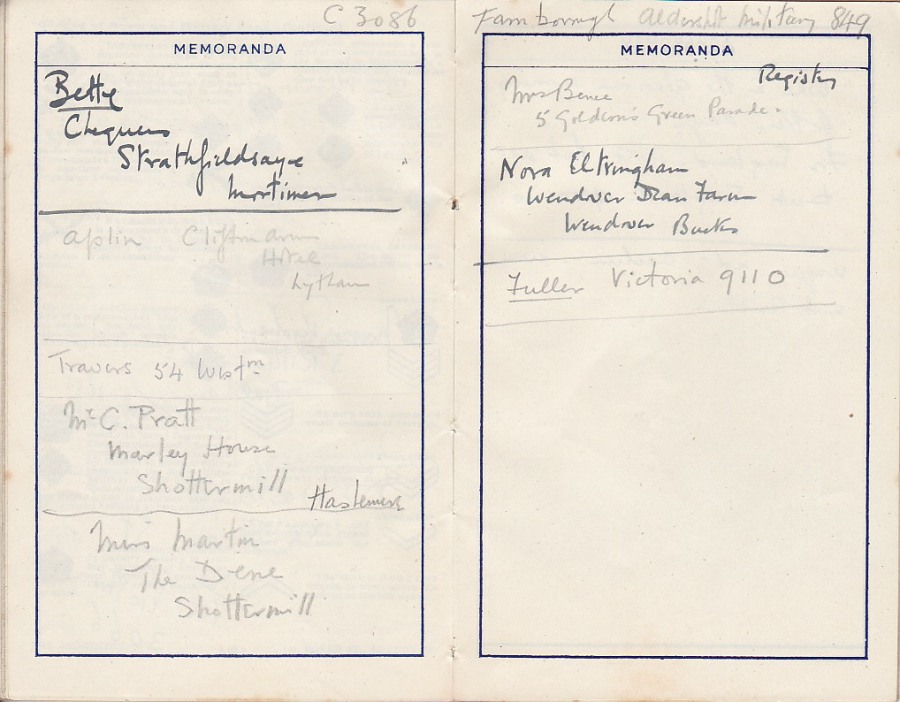 C 3086
MEMORANDA
Betty
Chequers
Strathfieldsaye
Mortimer
Aplin Clifton Arms
Hotel
Lytham
Travers 54 Westmr
Mr C. Pratt
Marley House
Shottermill
Haslemere
Miss Martin
The Dene
Shottermill
Farnborough Aldershot Military 849
MEMORANDA
Registry
Mrs Bence
5 Golders Green Parade.
Nora Eltringham
Wendover Dean Farm
Wendover Bucks
Fuller Victoria 9110